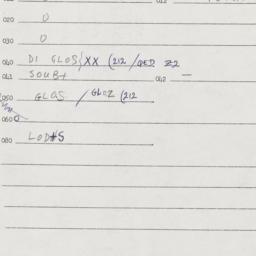 020 0
030 0
040 DI GLOS/XX (212 /QED 22
041 SOUB+ 042 —
050 GLOS / GLOZ (212
060
080 LOD#S